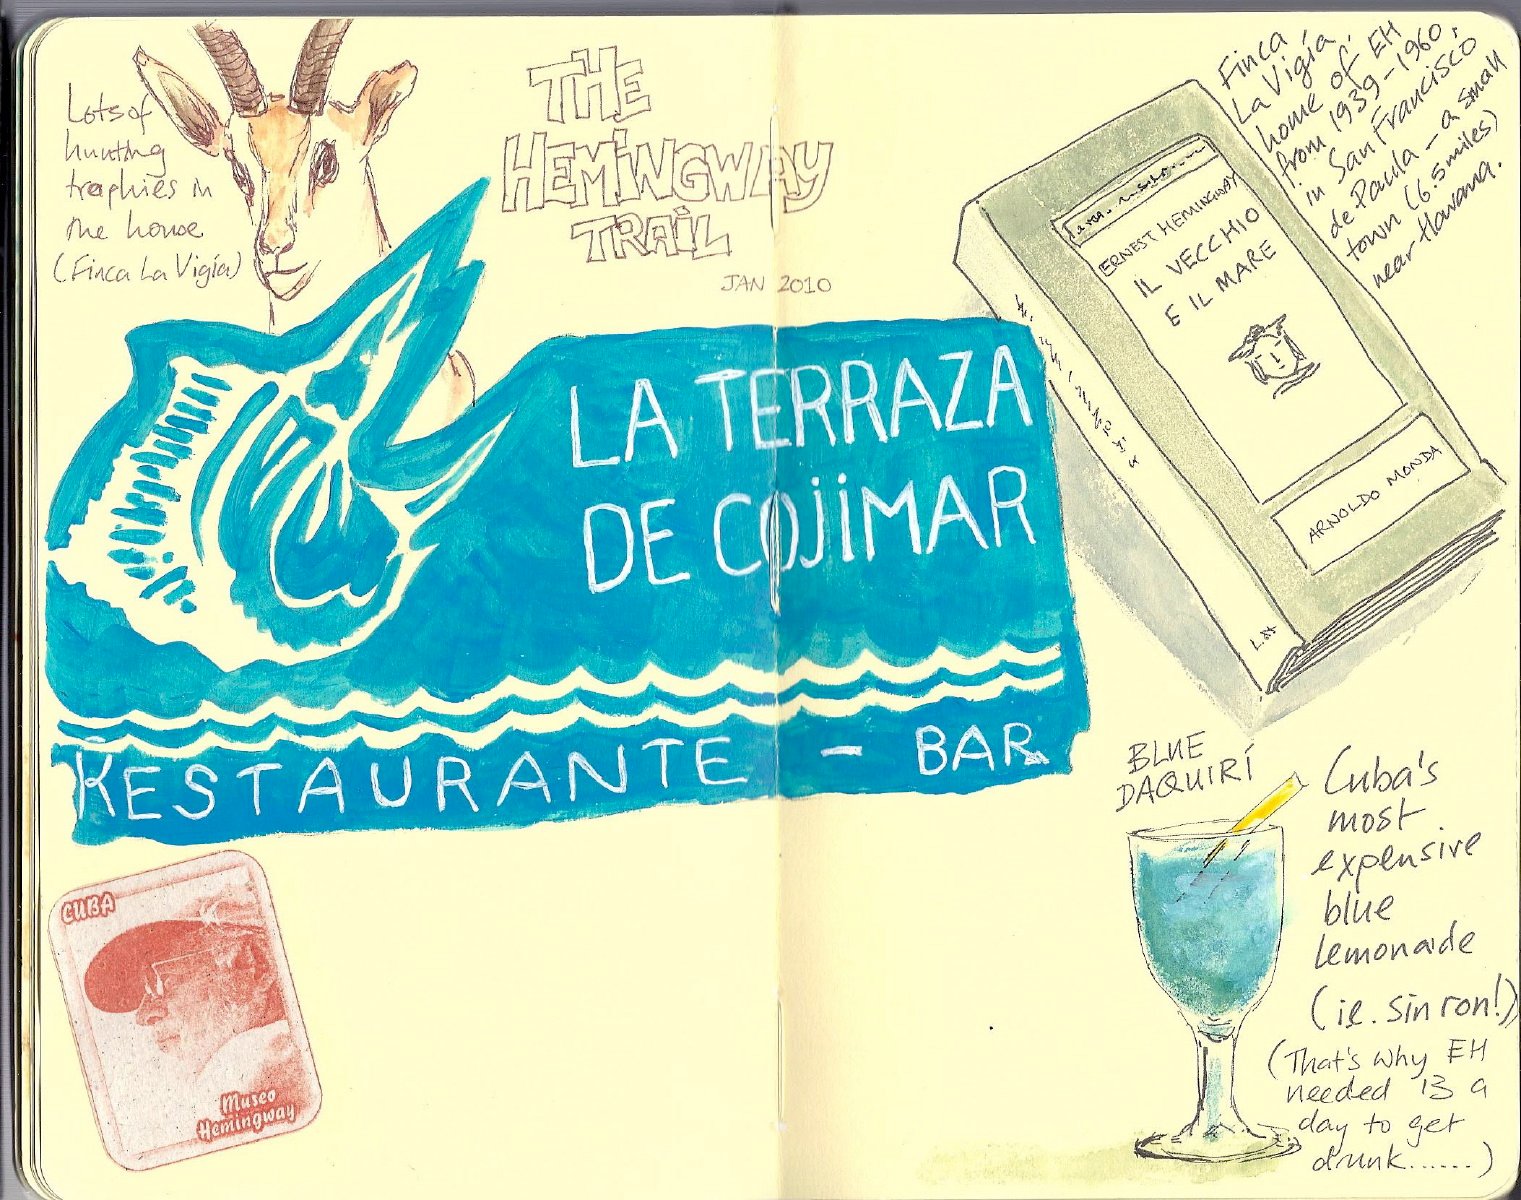 Lots of
hunting
trophies in
the house
(Finca La Vigía)
THE
HEMiNGWAY
TRAiL
JAN 2010
Finca
La Vigía,
home of EH
from 1939-1960,
in San Francisco
de Paula - a small
town (6.5 miles)
near Havana.
ERNEST HEMINGWAY
IL VECCHIO
E IL MARE
ARNOLDO MONDA
LA TERRAZA
DE COJIMAR
RESTAURANTE - BAR
CUBA
Museo
Hemingway
BLUE
DAQUIRÍ
Cuba's
most
expensive
blue
lemonade
(ie. sin ron!)
(That's why EH
needed 13 a
day to get
drunk......)